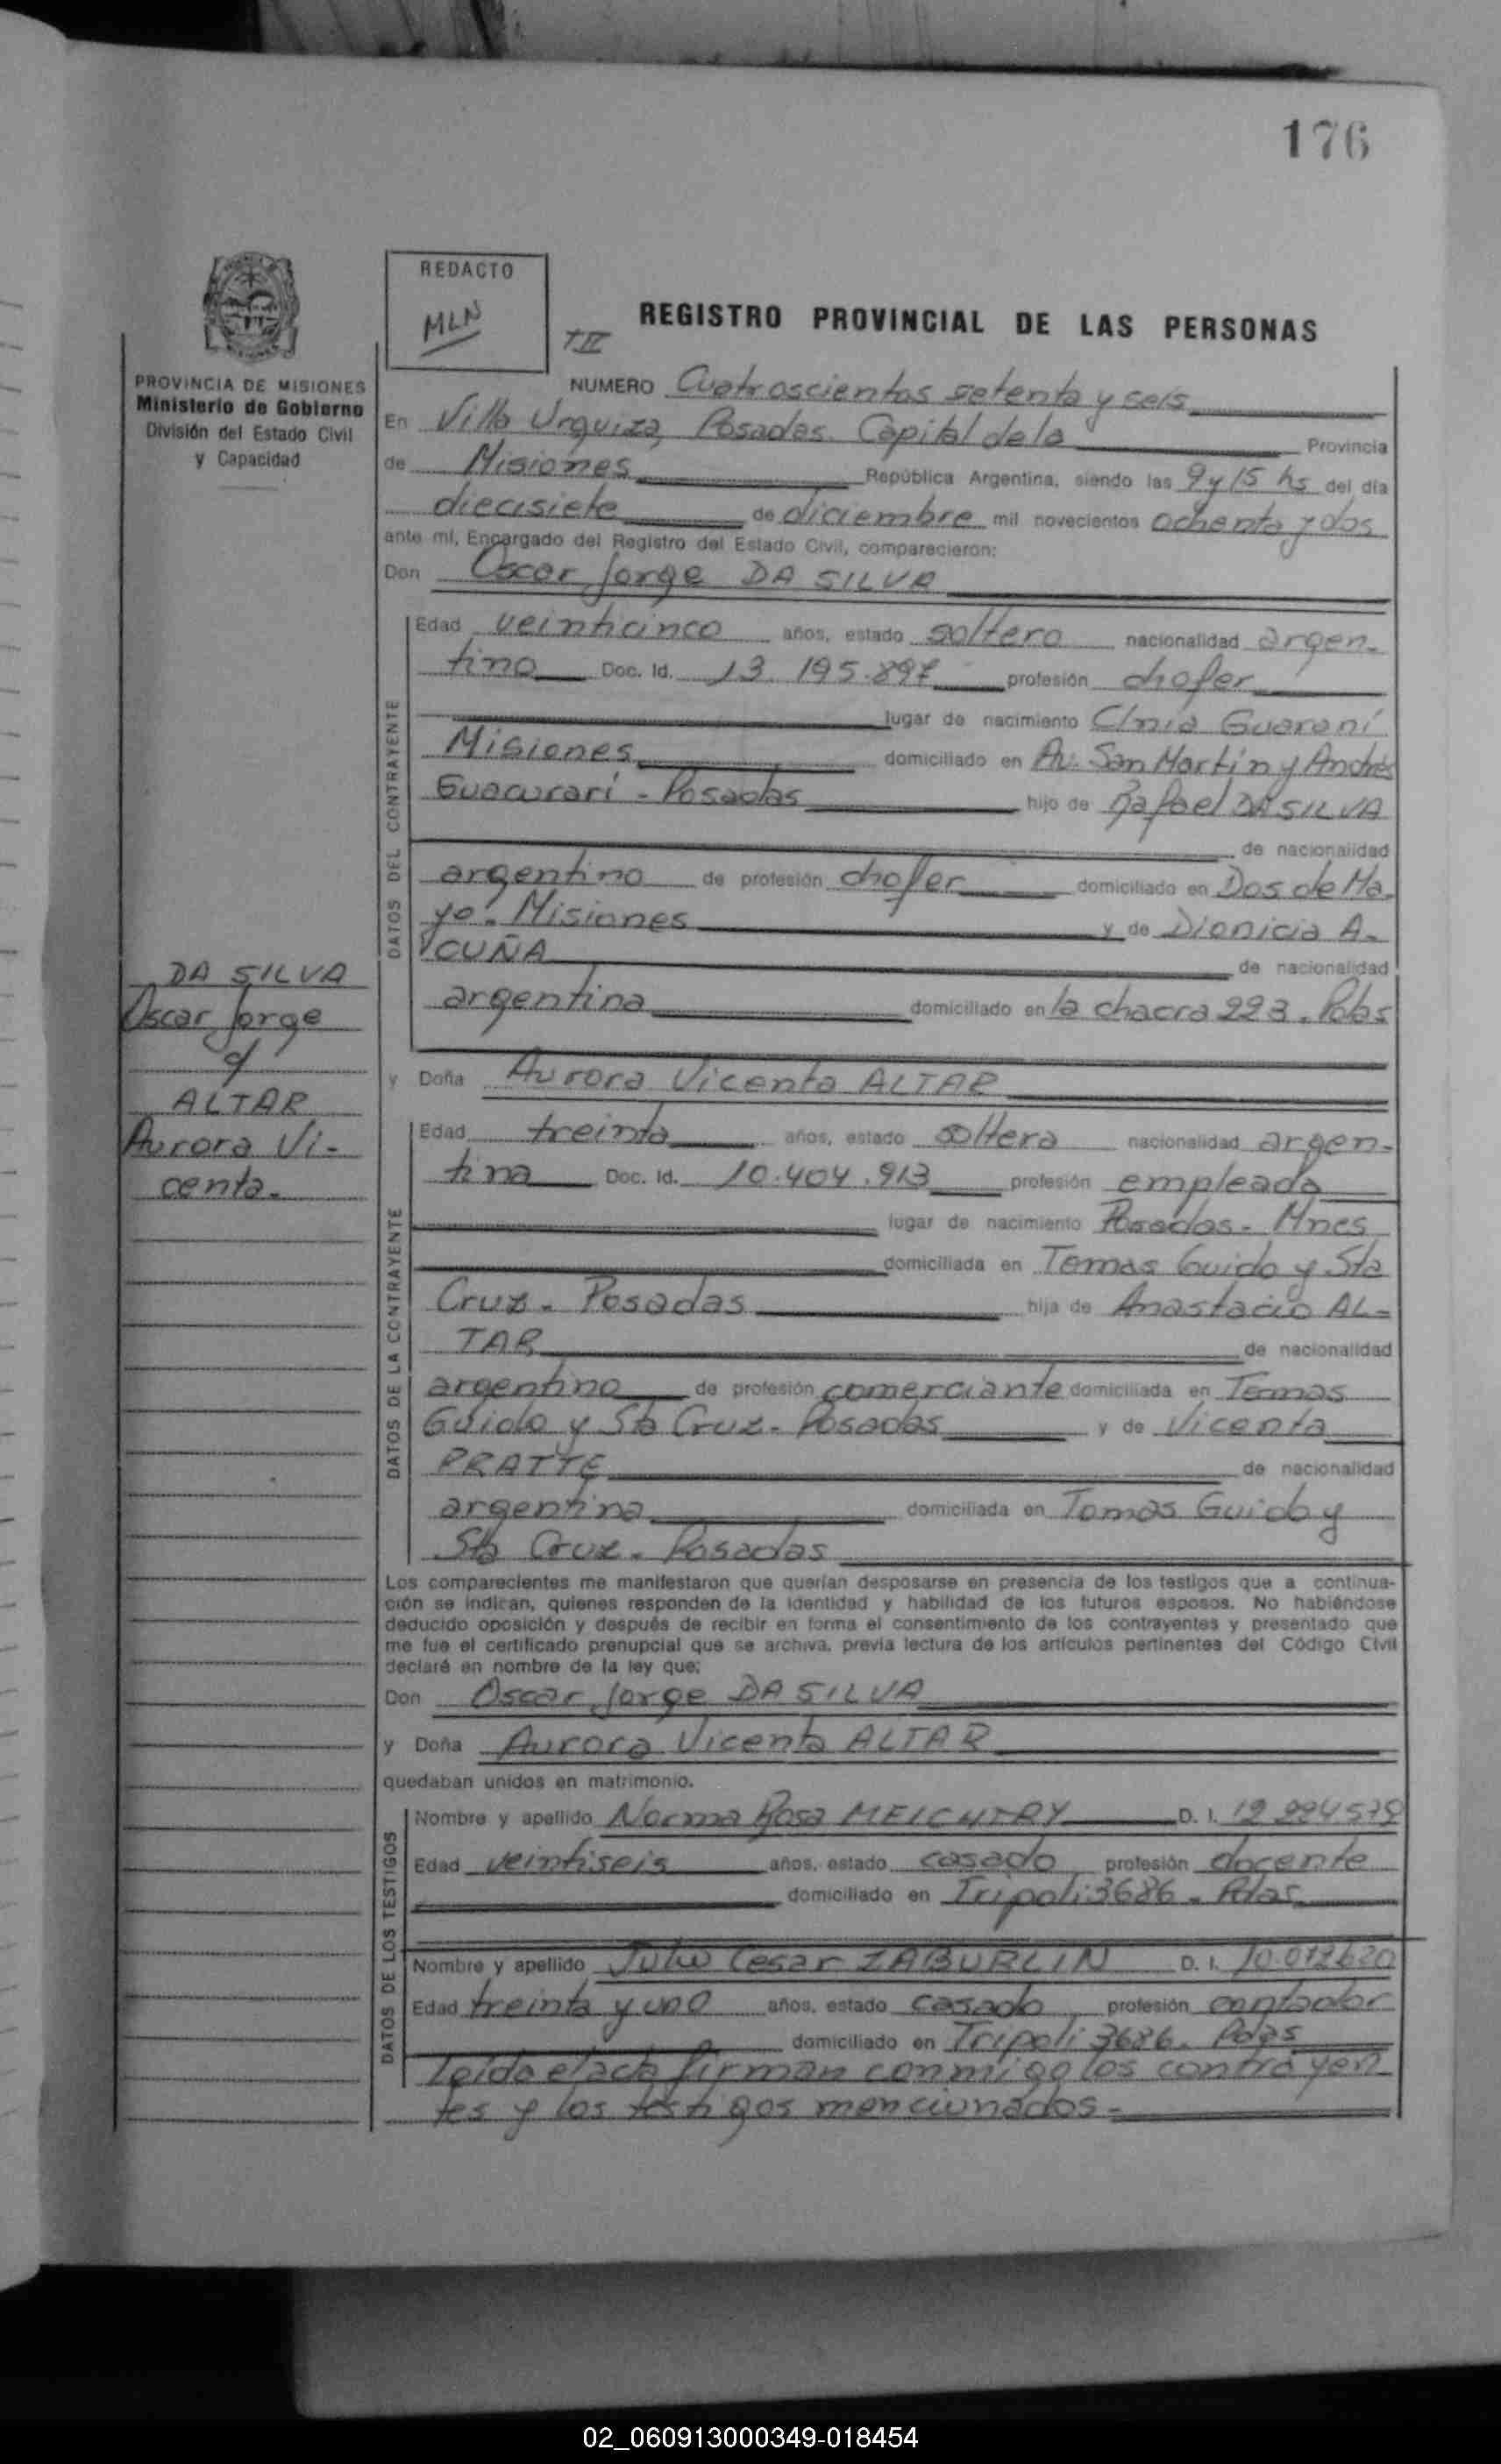 176
REDACTO
MLN
T IV
REGISTRO PROVINCIAL DE LAS PERSONAS
PROVINCIA DE MISIONES
Ministerio de Gobierno
División del Estado Civil
y Capacidad
NUMERO Cuatroscientos setenta y seis
En Villa Urquiza, Posadas. Capital de la Provincia
de Misiones República Argentina, siendo las 9 y 15 hs del día
diecisiete de diciembre mil novecientos ochenta y dos
ante mí, Encargado del Registro del Estado Civil, comparecieron:
Don Oscar Jorge DA SILVA
DATOS DEL CONTRAYENTE
Edad veinticinco años, estado soltero nacionalidad argen-
tino Doc. Id. 13.195.897 profesión chofer
lugar de nacimiento Clnia Guaraní
Misiones domiciliado en Av. San Martín y Andrés
Guacurarí - Posadas hijo de Rafael DA SILVA
de nacionalidad
argentino de profesión chofer domiciliado en Dos de Ma-
yo. Misiones y de Dionicia A-
CUÑA de nacionalidad
argentina domiciliado en la chacra 223. Pdas
DA SILVA
Oscar Jorge
c/
ALTAR
Aurora Vi-
centa.
y Doña Aurora Vicenta ALTAR
DATOS DE LA CONTRAYENTE
Edad treinta años, estado soltera nacionalidad argen-
tina Doc. Id. 10.404.913 profesión empleada
lugar de nacimiento Posadas - Mnes
domiciliada en Tomas Guido y Sta
Cruz - Posadas hija de Anastacio AL-
TAR de nacionalidad
argentino de profesión comerciante domiciliada en Tomas
Guido y Sta Cruz - Posadas y de Vicenta
PRATTE de nacionalidad
argentina domiciliada en Tomas Guido y
Sta Cruz - Posadas
Los comparecientes me manifestaron que querían desposarse en presencia de los testigos que a continua-
ción se indican, quienes responden de la identidad y habilidad de los futuros esposos. No habiéndose
deducido oposición y después de recibir en forma el consentimiento de los contrayentes y presentado que
me fue el certificado prenupcial que se archiva, previa lectura de los artículos pertinentes del Código Civil
declaré en nombre de la ley que:
Don Oscar Jorge DA SILVA
y Doña Aurora Vicenta ALTAR
quedaban unidos en matrimonio.
DATOS DE LOS TESTIGOS
Nombre y apellido Norma Rosa MEICHTRY D. I.
Edad veintiseis años, estado casado profesión docente
domiciliado en Tripoli 3686 - Pdas
Nombre y apellido Julio Cesar ZABURLIN D. I.
Edad treinta y uno años, estado casado profesión contador
domiciliado en Tripoli 3686. Pdas
Leída el acta firman conmigo los contrayen
tes y los testigos mencionados.-
02_060913000349-018454